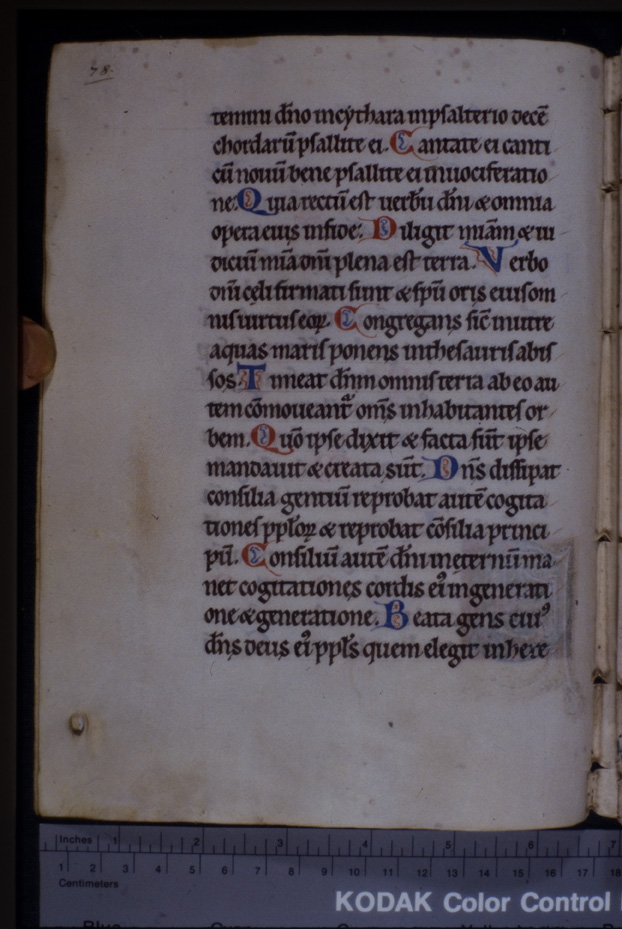 78.
temini dn̄o incẏthara inpsalterio decē
chordarū psallite ei. Cantate ei canti
cū nouū bene psallite ei inuociferatio
ne. Quia rectū est uerbū dn̄i & omnia
opera eius infide. Diligit miām & iu
diciū miā dn̄i plena est terra. Verbo
dn̄i celi firmati sunt & spū oris eius om
nis uirtus eoꝝ. Congregans sic̄ inutre
aquas maris ponens inthesauris abis
sos. Timeat dn̄m omnis terra ab eo au
tem cōmoueant᷑ om̄s inhabitantes or
bem. Qūo ipse dixit & facta sūt ipse
mandauit & creata sūt. Dn̄s dissipat
consilia gentiū reprobat autē cogita
tiones pplōꝝ & reprobat cōsilia princi
pū. Consiliū autē dn̄i ineternū ma
net cogitationes cordis eiꝰ ingenerati
one & generatione. Beata gens cuiꝰ
dn̄s deus eiꝰ ppl̄s quem elegit inhere
Inches 1 2 3 4 5 6 7
1 2 3 4 5 6 7 8 9 10 11 12 13 14 15 16 17 18
Centimeters
KODAK Color Control